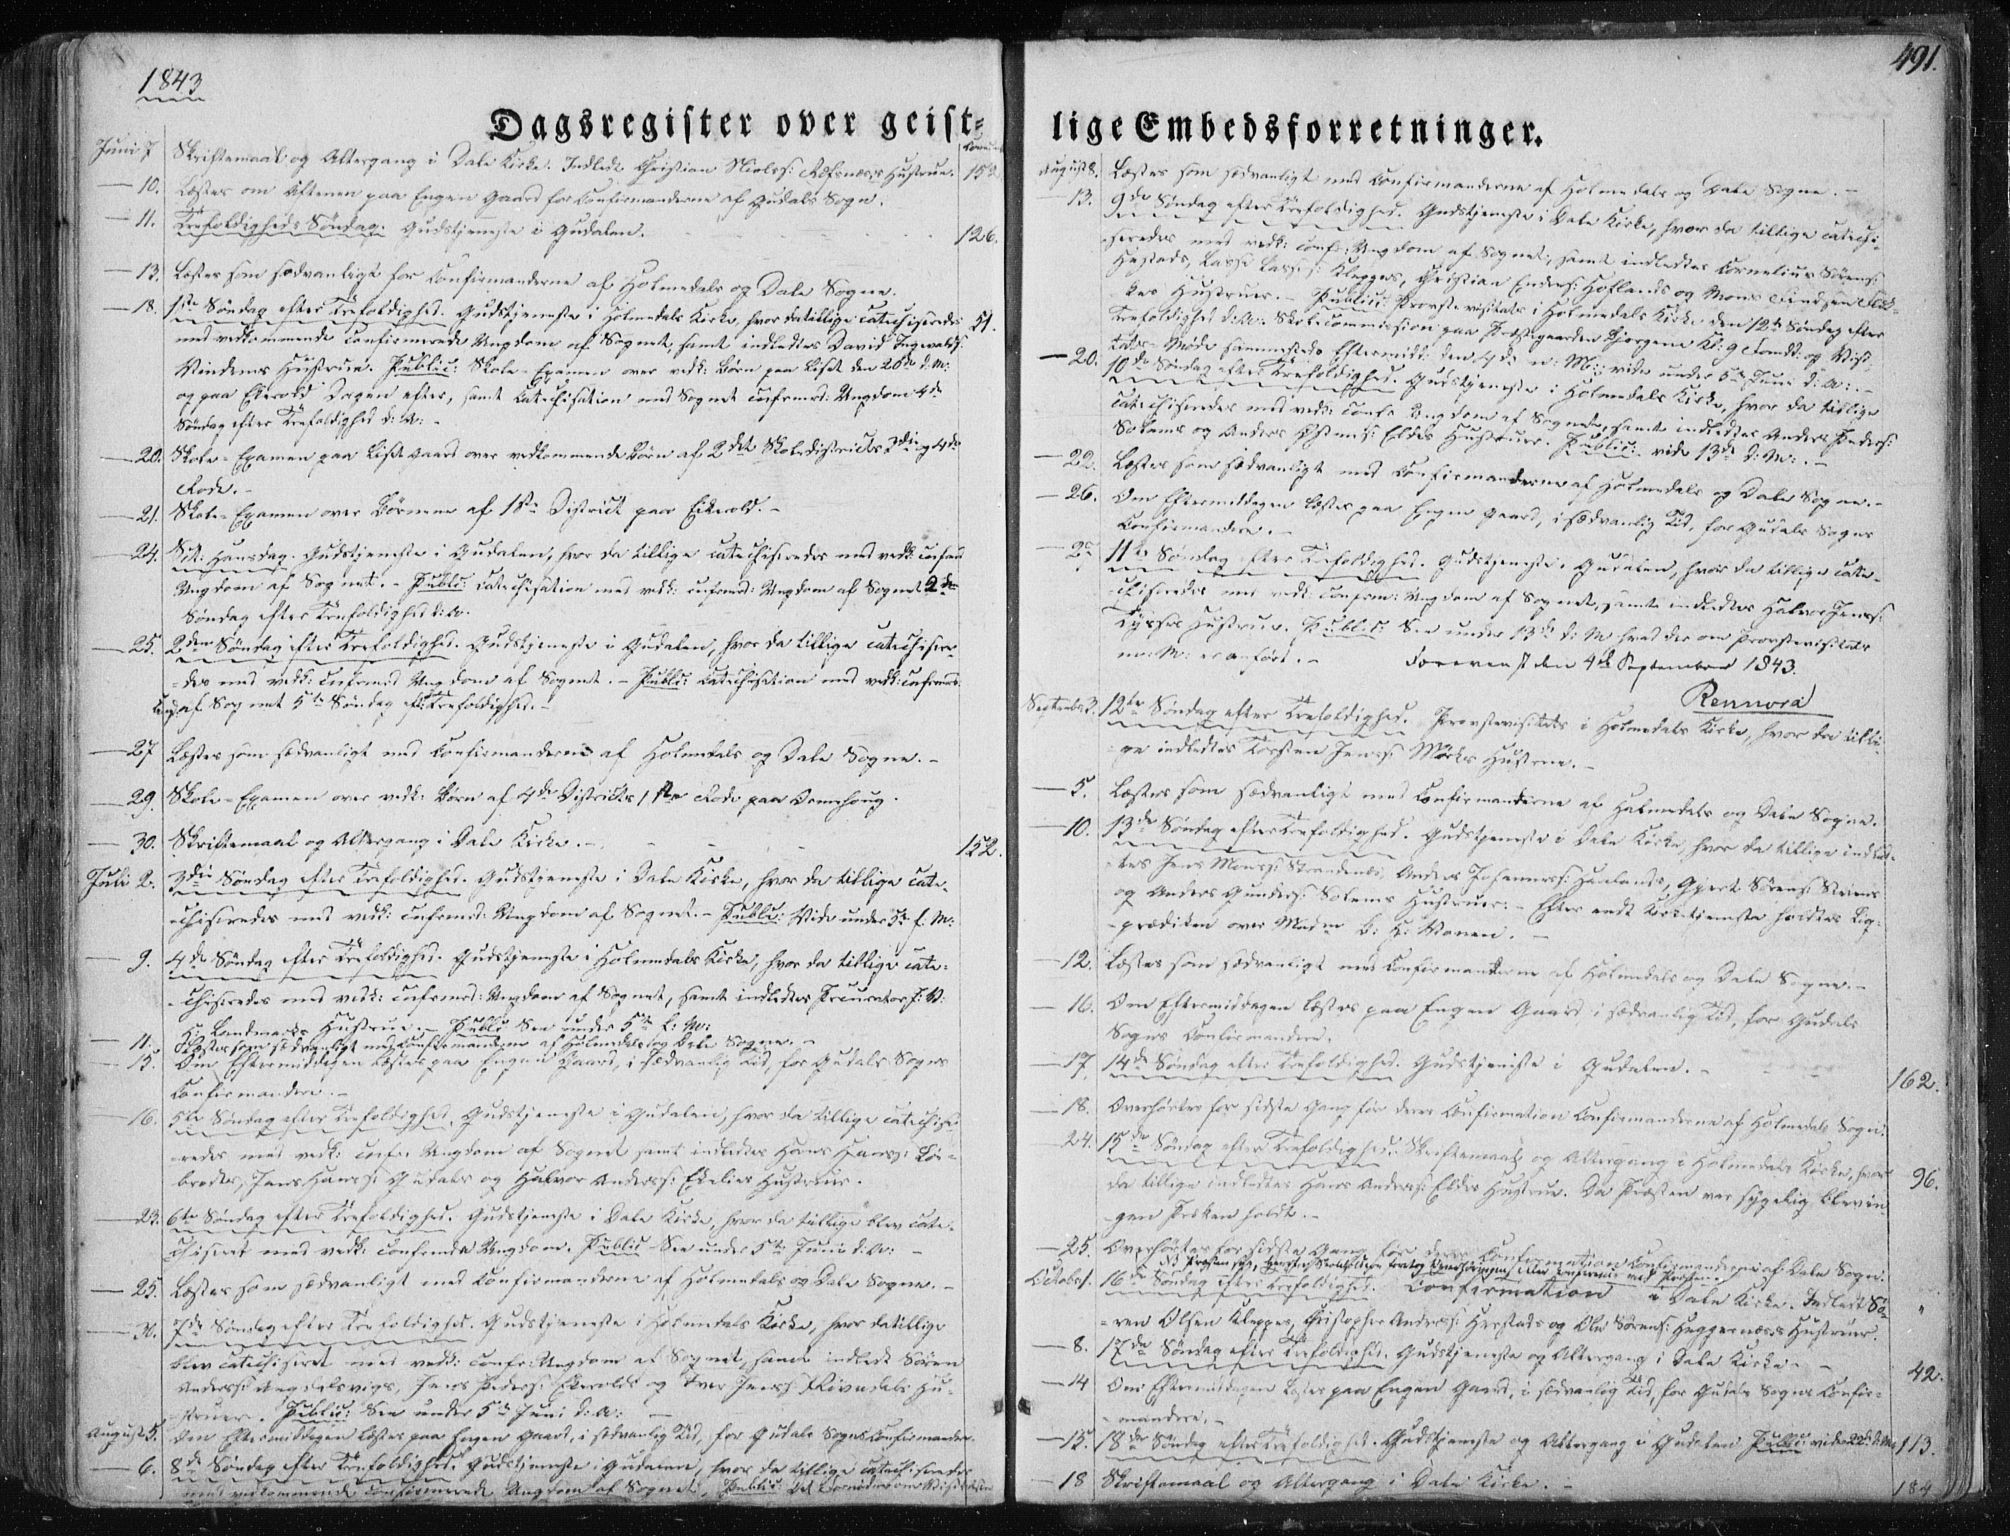 1843
491.
Dagsregister over geist-
lige Embedsforretninger.
Juni 7 Skriftemaal og Altergang i Dale Kirke. Indledt Christian Niels: Hustrue. 152
— 10. Læstes om Aftenen paa Engen Gaard for Confirmanderne af Gudals Sogn.
— 11. Trefoldigheds Søndag. Gudstjeneste i Gudalen. 126.
— 13. Læstes som sædvanligt for Confirmanderne af Holmedals og Dale Sogne.
— 18. 1ste Søndag efter Trefoldighed. Gudstjeneste i Holmedals Kirke, hvor da tillige catechiseredes 51.
med vedkommende confirmerede Ungdom af Sognet, samt indledtes David Ingevalds:
Hustrue. Public: Skole-Examen over vedk: Børn paa den 20de d: M:
og paa Eikevold Dagen efter, samt Catechisation med Sognets confirmd: Ungdom 4de
Søndag efter Trefoldighed d: A: -
— 20. Skole-Examen paa Gaard over vedkommende Børn af 2det Skoledistricts 3die og 4de
Rode. -
— 21. Skole-Examen over Børnene af 1ste District paa Eikevold. -
— 24. Sct: Hansdag. Gudstjeneste i Gudalen, hvor da tillige catechiseredes med vedk: confmd
Ungdom af Sognet. - Public: Catechisation med vedk: cnfrmd: Ungdom af Sognet 2den
Søndag efter Trefoldighed d: A.
— 25. 2den Søndag efter Trefoldighed. Gudstjeneste i Gudalen, hvor da tillige catechisere-
-des med vedk: cnfrmd Ungdom af Sognet. - Public: Catechisation med vedk: cnfrmd:
Ungd: af Sognet 5te Søndag eft: Trefoldighed. -
— 27 Læstes som sædvanligt med Confirmanderne af Holmedals og Dale Sogne. -
— 29. Skole-Examen over vedk: Børn af 4de Districts 1ste Rode paa
— 30. Skriftemaal og Altergang i Dale Kirke. - 152.
Juli 2. 3die Søndag efter Trefoldighed. Gudstjeneste i Dale Kirke, hvor da tillige cate-
chiseredes med vedk: cnfrmd: Ungdom af Sognet. - Public: Vide under 5te f. M:
— 9. 4de Søndag efter Trefoldighed. Gudstjeneste i Holmedals Kirke, hvor da tillige cate-
-chiseredes med vedk: cnfrmd: Ungdom af Sognet, samt indledtes Procurator
H: Landmarks Hustrue. - Public See under 5te f: M:
— 11. Læstes som sædvanligt med Confirmanderne af Holmedals og Dale Sogne. -
— 15. Om Eftermiddagen læstes paa Engen Gaard, i sædvanlig Tid, for Gudals Sogns
Confirmandere. -
— 16. 5te Søndag efter Trefoldighed. Gudstjeneste i Gudalen, hvor da tillige catechise-
-redes med vedk: confr: Ungdom af Sognet samt indledtes Hans Hans:
Jens Hans: Gudals og Halvor Anders: Hustruer.
— 23. 6te Søndag efter Trefoldighed. Gudstjeneste i Dale Kirke, hvor da tillige blev cate-
chiseret med vedk: confirmde Ungdom. Public See under 5te Juni d: A: -
— 25. Læstes som sædvanligt med Confirmanderne af Holmedals og Dale Sogne. -
— 30. 7de Søndag efter Trefoldighed. Gudstjeneste i Holmedals Kirke, hvor da tillige
blev catechiseret med vedk: confr: Ungdom af Sognet, samt indledt Søren
Anders: Jens Peders: Eikevolds og Iver Jens: Rivedals Hu-
-struer. Public: See under 5te Juni d: A: -
August 5. Om Eftermiddagen læstes paa Engen Gaard, i sædvanlig Tid, for Gudals Sogns Confirmander.
— 6. 8de Søndag efter Trefoldighed. Gudstjeneste i Gudalen, hvor da tillige catechiseredes
med vedkommende confirmerede Ungdom af Sognet. Public:
August 8. Læstes som sædvanligt med Confirmanderne af Holmedals og Dale Sogne. -
— 13. 9de Søndag efter Trefoldighed. Gudstjeneste i Dale Kirke, hvor da tillige catechi-
-seredes med vedk: confr: Ungdom af Sognet, samt indledtes Kornelius Sørens:
Lasse Lasses: Kleppes, Christian Enders: Hoflands og Mons
Hustruer. - Public: Provstevisitats i Holmedals Kirke den 12te Søndag efter
Trefoldighed d: A: Skolecommission paa Præstegaarden Kl: 9
Møde sammesteds Eftermidd: den 4de n: M:; vide under 5te Juni d: A: -
— 20. 10de Søndag efter Trefoldighed. Gudstjeneste i Holmedals Kirke, hvor da tillige
catechiseredes med vedk: confr Ungdom af Sognet, samt indledtes Anders Peders:
Solems og Anders Eldes Hustruer. Public: vide 13de d: M: -
— 22. Læstes som sædvanligt med Confirmanderne af Holmedals og Dale Sogne. -
— 26. Om Eftermiddagen læstes paa Engen Gaard, i sædvanlig Tid, for Gudals Sogns
Confirmandere. -
— 27 11te Søndag efter Trefoldighed. Gudstjeneste i Gudalen, hvor da tillige cate-
chiseredes med vedk: confirm: Ungdom af Sognet, samt indledtes Halvor Jens:
Hustrue. Public: See under 13de d: M hvad der om Provstevisitats
n: M: er anført. - Foreviist den 4de September 1843.
Rennord
Septembr 3. 12te Søndag efter Trefoldighed. Provstevisitats i Holmedals Kirke, hvor da tilli-
-ge indledtes Torsten Jens: Mørks Hustrue. -
— 5. Læstes som sædvanligt med Confirmanderne af Holmedals og Dale Sogne.
— 10. 13de Søndag efter Trefoldighed. Gudstjeneste i Dale Kirke, hvor da tillige indled-
-tes Jens Mons: Strandenæs, Anders Johannes: Gjert Sørens: Steiens
og Anders Gunders: Solems Hustruer. - Efter endt Kirketjeneste holdtes Lig-
-prædiken over Madm B: H: Vonen. -
— 12. Læstes som sædvanligt med Confirmanderne af Holmedals og Dale Sogne. -
— 16. Om Eftermiddagen læstes paa Engen Gaard i sædvanlig Tid, for Gudals
Sogns Confirmandere.
— 17. 14de Søndag efter Trefoldighed. Gudstjeneste i Gudalen. - 162.
— 18. Overhørtes for sidste Gang før deres Confirmation Confirmanderne af Holmedals Sogn.
— 24. 15de Søndag efter Trefoldighed. Skriftemaal og Altergang i Holmedals Kirke, hvor 96.
da tillige indledtes Hans Anders: Eldes Hustrue. Da Præsten var sygelig, blev in-
-gen Præken holdt. -
— 25. Overhørtes for sidste Gang før deres Confirmation Confirmanderne af Dale Sogn.
Octobr 1. 16de Søndag efter Trefoldighed. Confirmation i Dale Kirke. Indledt Sø- "
-ren Olsen Kleppes, Christopher Anders: Herstads og Ole Sørens: Heggenæss Hustruer.
— 8. 17de Søndag efter Trefoldighed. Gudstjeneste og Altergang i Dale Kirke. - 42.
— 14 Om Eftermiddagen læstes paa Engen Gaard, i sædvanlig Tid, for Gudals Sogns Confir-
-mandere. -
— 15. 18de Søndag efter Trefoldighed. Gudstjeneste og Altergang i Gudalen Public: vide 113.
— 18 Skriftemaal og Altergang i Dale Kirke. - 184